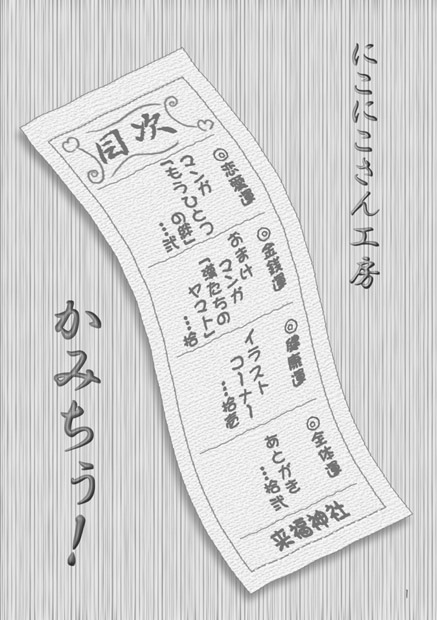 にこにこさん工房
目次
◎恋愛運
マンガ
「もうひとつ
の絆」
…弐
◎金銭運
おまけ
マンガ
「僕たちの
ヤマト」
…拾
◎健康運
イラスト
コーナー
…拾壱
◎全体運
あとがき
…拾弐
来福神社
かみちう!
1